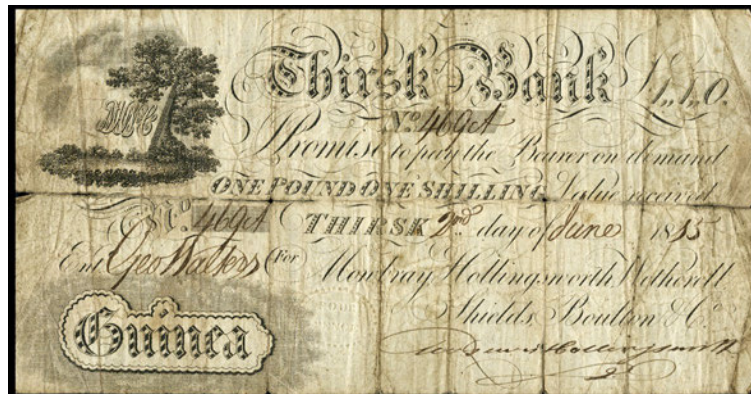 Thirsk Bank £1,,1,,0.
No. 469ct
Promise to pay the Bearer on demand
ONE POUND ONE SHILLING Value received
No. 469ct THIRSK 2nd day of June 18
Ent. Geo Walters For Mowbray, Hollingsworth, Wetherell
Shields, Boulton & Co.
Guinea